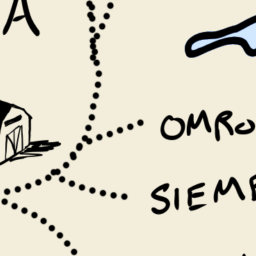 A
OMRO
SIEME